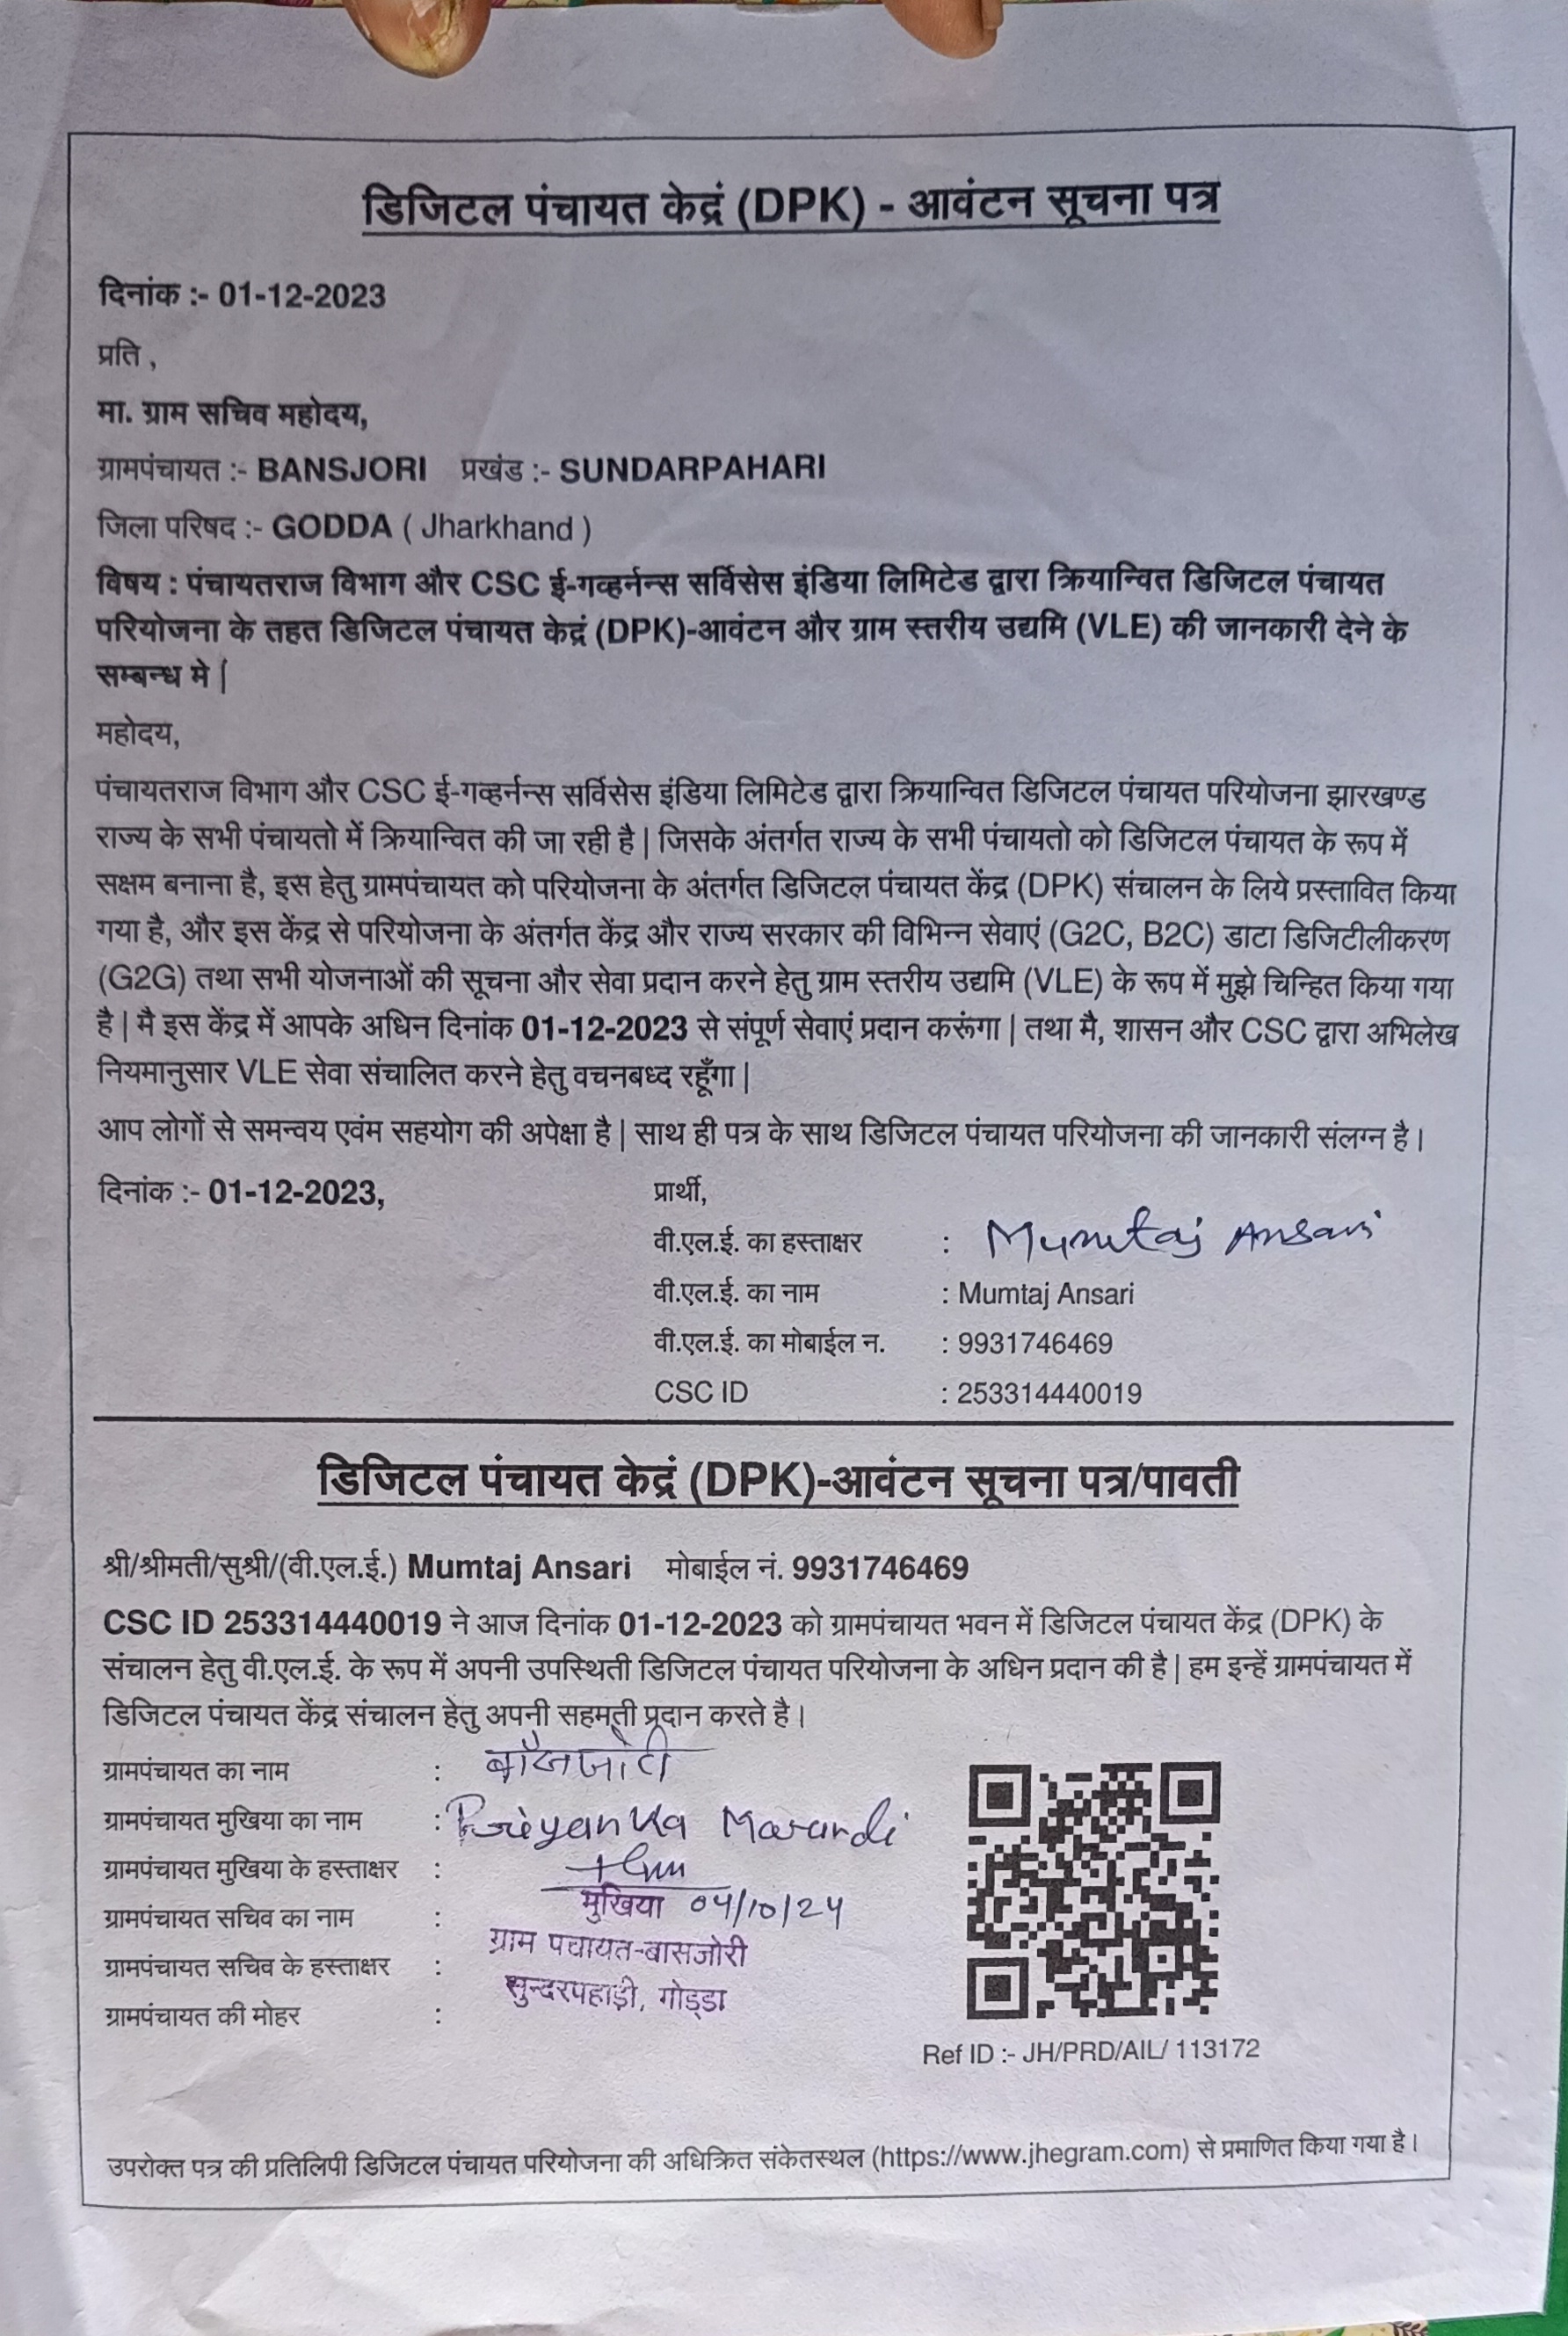 डिजिटल पंचायत केद्रं (DPK) - आवंटन सूचना पत्र
दिनांक :- 01-12-2023
प्रति ,
मा. ग्राम सचिव महोदय,
ग्रामपंचायत :- BANSJORI प्रखंड :- SUNDARPAHARI
जिला परिषद :- GODDA ( Jharkhand )
विषय : पंचायतराज विभाग और CSC ई-गव्हर्नन्स सर्विसेस इंडिया लिमिटेड द्वारा क्रियान्वित डिजिटल पंचायत
परियोजना के तहत डिजिटल पंचायत केद्रं (DPK)-आवंटन और ग्राम स्तरीय उद्यमि (VLE) की जानकारी देने के
सम्बन्ध मे |
महोदय,
पंचायतराज विभाग और CSC ई-गव्हर्नन्स सर्विसेस इंडिया लिमिटेड द्वारा क्रियान्वित डिजिटल पंचायत परियोजना झारखण्ड
राज्य के सभी पंचायतो में क्रियान्वित की जा रही है | जिसके अंतर्गत राज्य के सभी पंचायतो को डिजिटल पंचायत के रूप में
सक्षम बनाना है, इस हेतु ग्रामपंचायत को परियोजना के अंतर्गत डिजिटल पंचायत केंद्र (DPK) संचालन के लिये प्रस्तावित किया
गया है, और इस केंद्र से परियोजना के अंतर्गत केंद्र और राज्य सरकार की विभिन्न सेवाएं (G2C, B2C) डाटा डिजिटीलीकरण
(G2G) तथा सभी योजनाओं की सूचना और सेवा प्रदान करने हेतु ग्राम स्तरीय उद्यमि (VLE) के रूप में मुझे चिन्हित किया गया
है | मै इस केंद्र में आपके अधिन दिनांक 01-12-2023 से संपूर्ण सेवाएं प्रदान करूंगा | तथा मै, शासन और CSC द्वारा अभिलेख
नियमानुसार VLE सेवा संचालित करने हेतु वचनबध्द रहूँगा |
आप लोगों से समन्वय एवंम सहयोग की अपेक्षा है | साथ ही पत्र के साथ डिजिटल पंचायत परियोजना की जानकारी संलग्न है।
दिनांक :- 01-12-2023, प्रार्थी,
वी.एल.ई. का हस्ताक्षर : Mumtaj Ansari
वी.एल.ई. का नाम : Mumtaj Ansari
वी.एल.ई. का मोबाईल न. : 9931746469
CSC ID : 253314440019
डिजिटल पंचायत केद्रं (DPK)-आवंटन सूचना पत्र/पावती
श्री/श्रीमती/सुश्री/(वी.एल.ई.) Mumtaj Ansari मोबाईल नं. 9931746469
CSC ID 253314440019 ने आज दिनांक 01-12-2023 को ग्रामपंचायत भवन में डिजिटल पंचायत केंद्र (DPK) के
संचालन हेतु वी.एल.ई. के रूप में अपनी उपस्थिती डिजिटल पंचायत परियोजना के अधिन प्रदान की है | हम इन्हें ग्रामपंचायत में
डिजिटल पंचायत केंद्र संचालन हेतु अपनी सहमती प्रदान करते है।
ग्रामपंचायत का नाम :
ग्रामपंचायत मुखिया का नाम : Priyanka Marandi
ग्रामपंचायत मुखिया के हस्ताक्षर :
मुखिया 04/10/24
ग्रामपंचायत सचिव का नाम :
ग्राम पंचायत-बासजोरी
ग्रामपंचायत सचिव के हस्ताक्षर :
सुन्दरपहाड़ी, गोड्डा
ग्रामपंचायत की मोहर :
Ref ID :- JH/PRD/AIL/ 113172
उपरोक्त पत्र की प्रतिलिपी डिजिटल पंचायत परियोजना की अधिक्रित संकेतस्थल (https://www.jhegram.com) से प्रमाणित किया गया है।